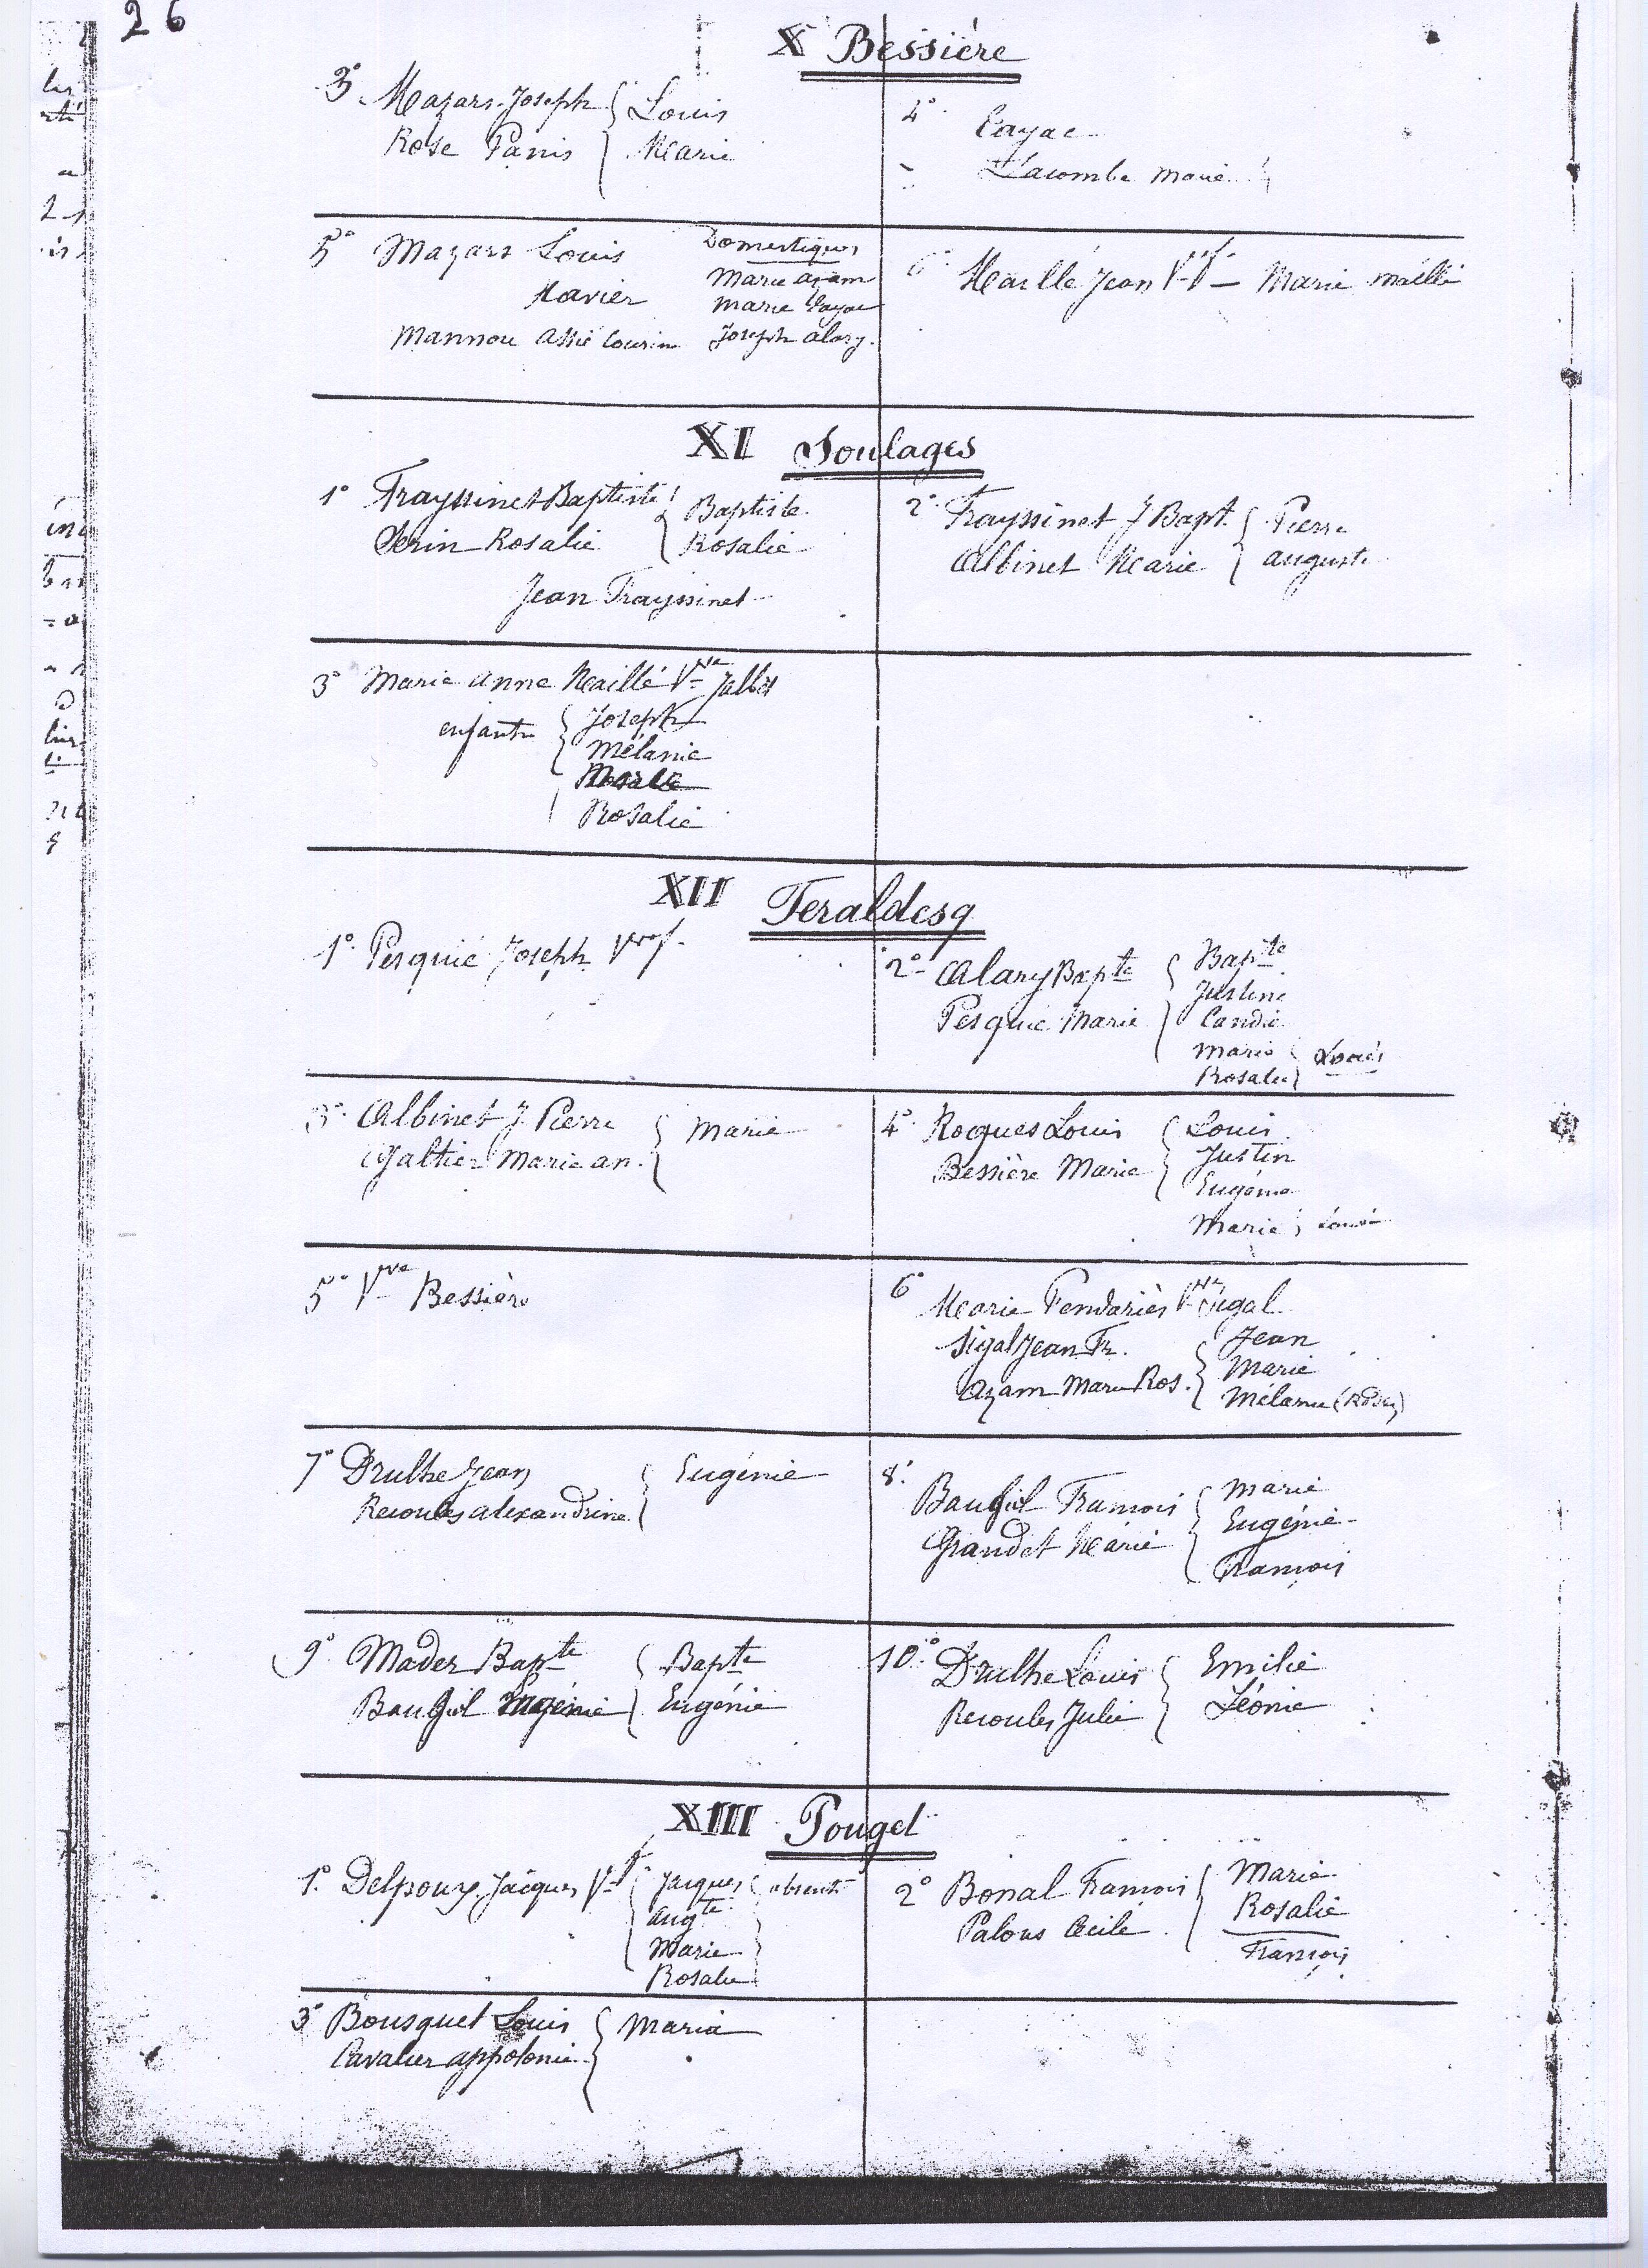 26
X Bessière
3° Mazars Joseph { Louis
Rose Panis { Marie
4° Cayac
Lacombe Marie
5° Mazars Louis
Xavier
Mannou assié cousine
Domestiques
Marie azam
Marie Cayac
Joseph alary.
6° Maillé Jean Vf Vf — Marie maillé
XI Soulages
1° Frayssinet Baptiste { Baptiste
Serin Rosalie { Rosalie
Jean Frayssinet
2° Frayssinet J Bapt. { Pierre
Albinet Marie { auguste
3° Marie anne Maillé Vve Jalbert
enfants { Joseph
Mélanie
Rosalie
XII Feraldesq
1° Pesquié Joseph Veuf
2° Alary Bapte { Bapte
Pesquié Marie { Justine
Candie
Marie { Loués
Rosalie }
3° Albinet J Pierre { Marie
Galtier Marie an. {
4° Roques Louis { Louis
Bessière Marie { Justin
Eugénie
Marie } Louée
5° Vve Bessière
6° Marie Pendariès Vve Sigal
Sigal Jean Fr. { Jean
Azam Marie Ros. { Marie
Mélanie (Rosa)
7° Drulhe Jean { Eugénie
Recoules alexandrine {
8° Baugil François { Marie
Grandet Marie { Eugénie
François
9° Mader Bapte { Bapte
Baugil Eugénie { Eugénie
10° Drulhe Louis { Emilie
Recoules Julie { Léonie
XIII Pouget
1° Delpoux Jacques Vf { Jacques { absents
Augte
Marie
Rosalie
2° Bonal François { Marie
Palous Cécile { Rosalie
François
3° Bousquet Louis { Maria
Cavalier appolonie {